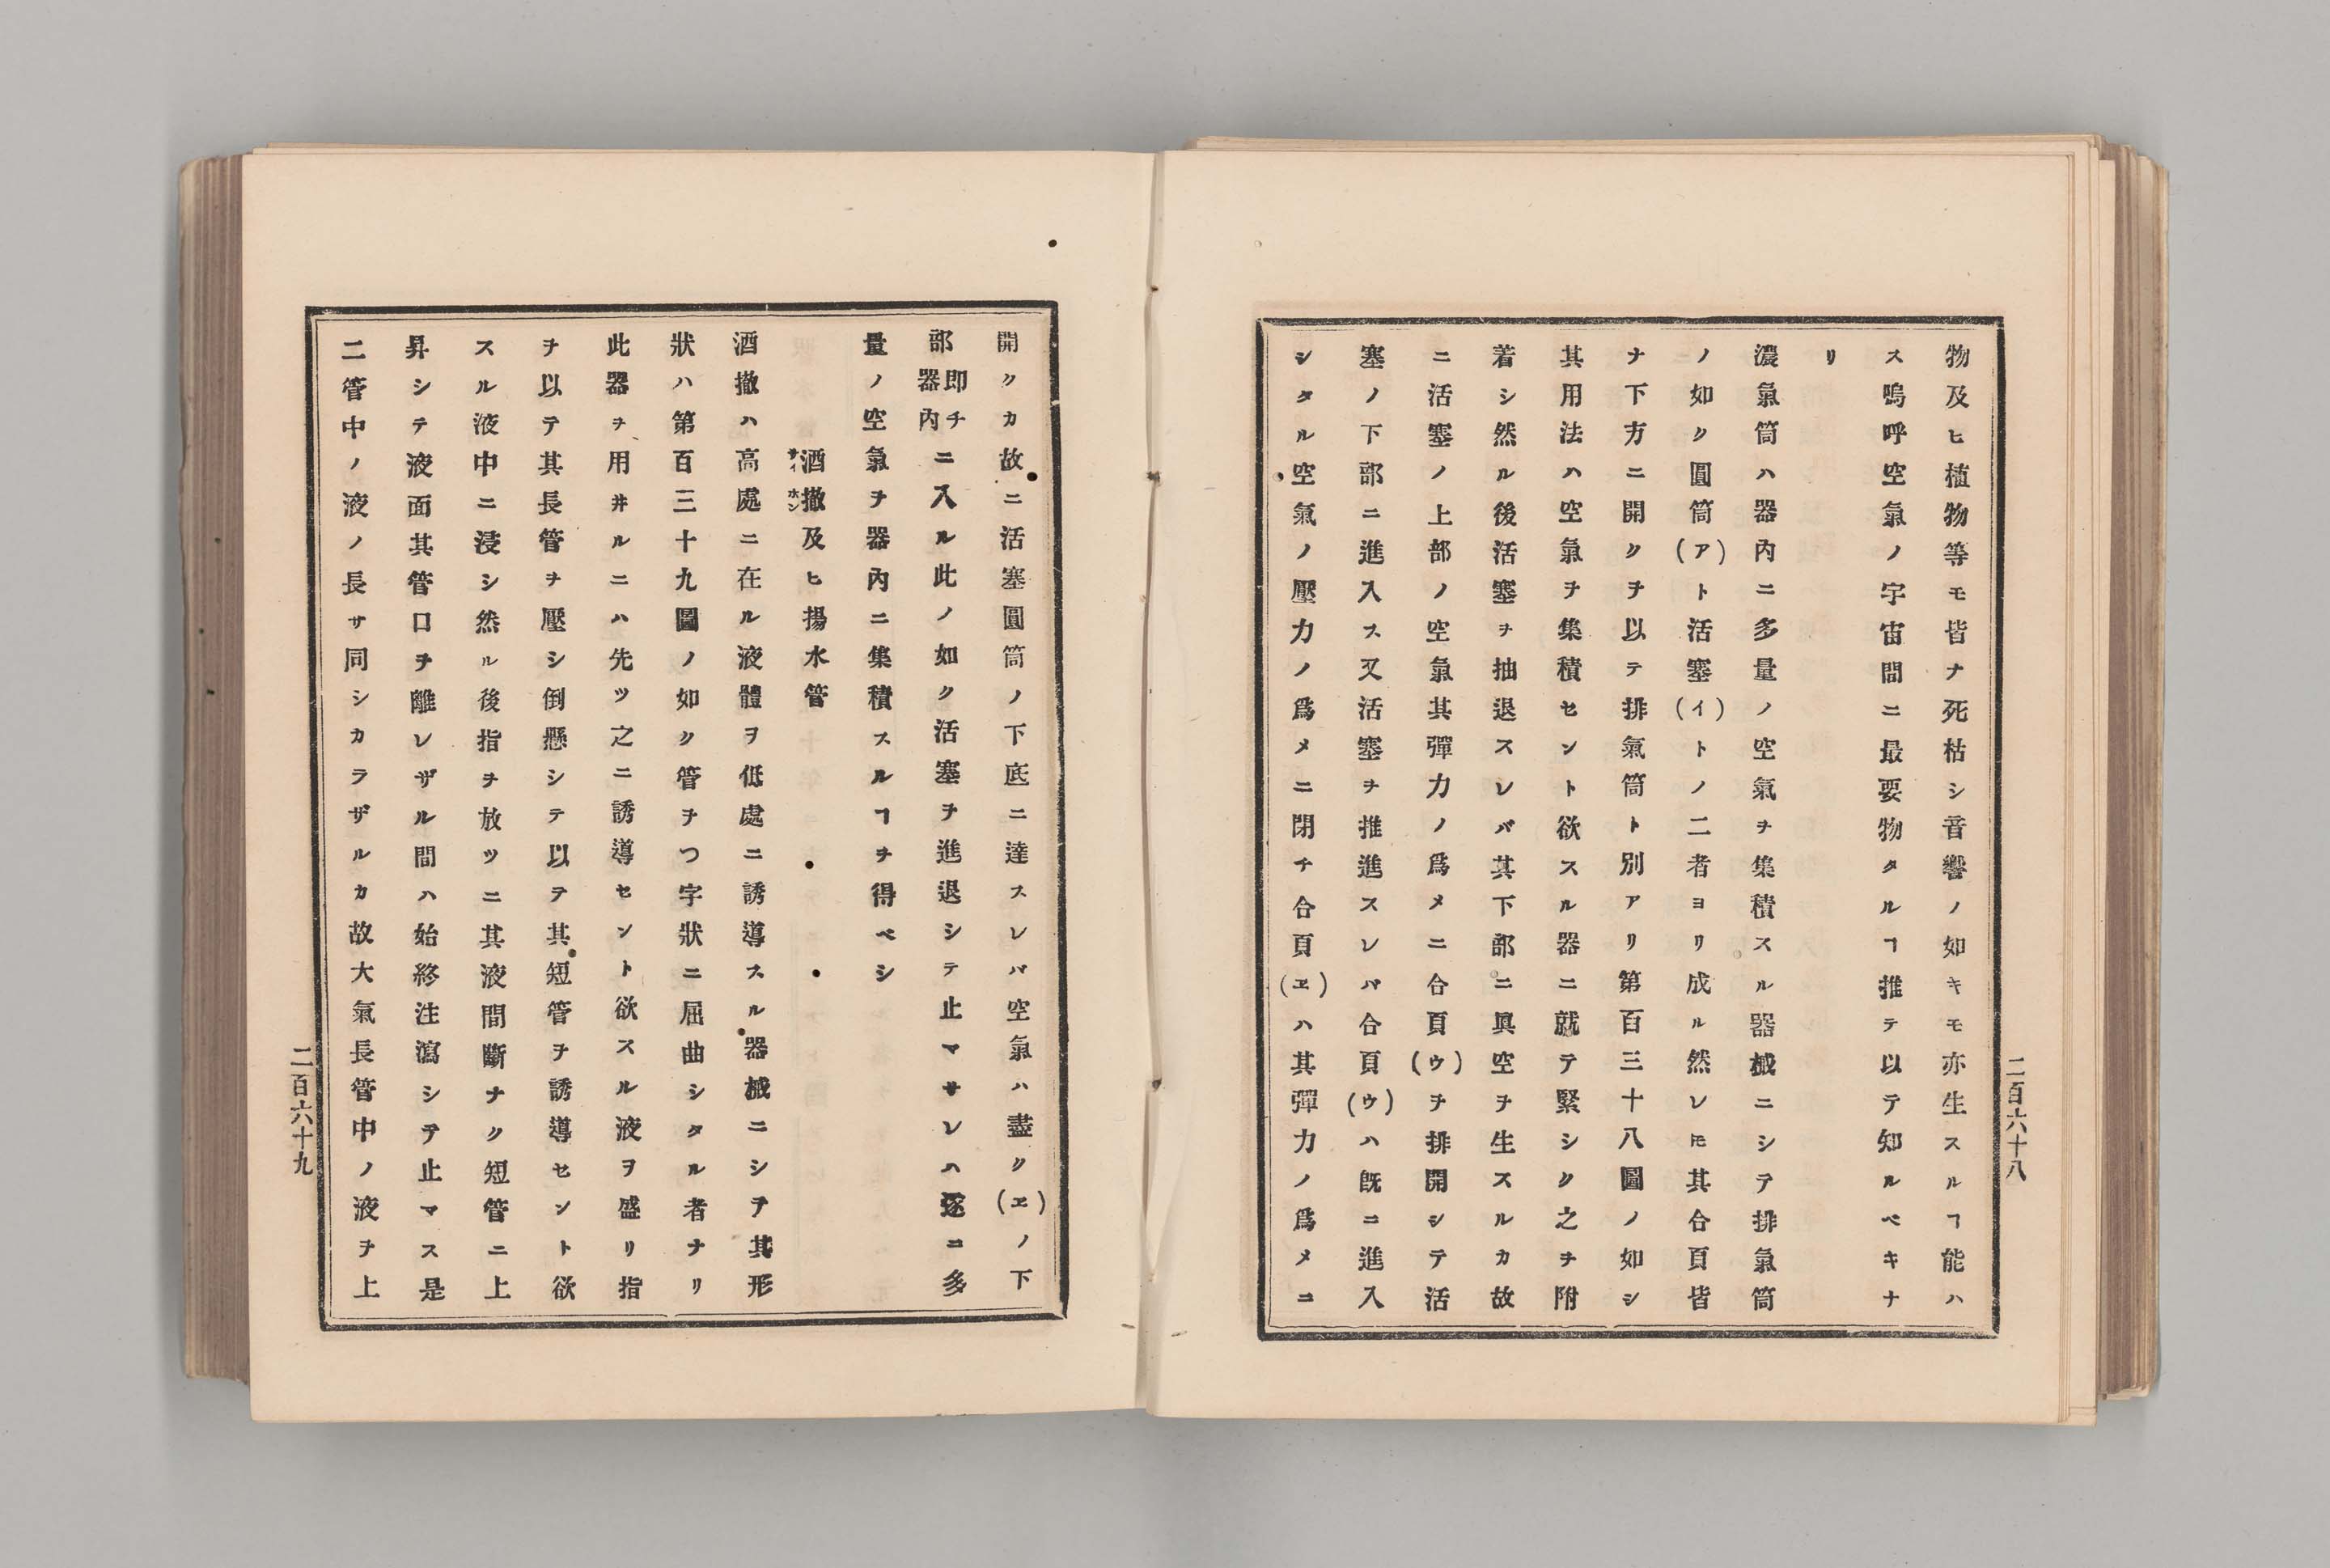 物及ヒ植物等モ皆ナ死枯シ音響ノ如キモ亦生スルヿ能ハ
ス嗚呼空氣ノ宇宙間ニ最要物タルヿ推テ以テ知ルベキナ
リ
濃氣筒ハ器內ニ多量ノ空氣ヲ集積スル器械ニシテ排氣筒
ノ如ク圓筒(ア)ト活塞(イ)トノ二者ヨリ成ル然レ𪜈其合頁皆
ナ下方ニ開クヲ以テ排氣筒ト別アリ第百三十八圖ノ如シ
其用法ハ空氣ヲ集積セント欲スル器ニ就テ緊シク之ヲ附
着シ然ル後活塞ヲ抽退スレバ其下部ニ眞空ヲ生スルカ故
ニ活塞ノ上部ノ空氣其彈力ノ爲メニ合頁(ウ)ヲ排開シテ活
塞ノ下部ニ進入ス又活塞ヲ推進スレバ合頁(ウ)ハ既ニ進入
シタル空氣ノ壓力ノ爲メニ閉チ合頁(ヱ)ハ其彈力ノ爲メニ
二百六十八
開クカ故ニ活塞圓筒ノ下底ニ達スレバ空氣ハ盡ク(ヱ)ノ下
部即チ器內ニ入ル此ノ如ク活塞ヲ進退シテ止マサレハ逐ニ多
量ノ空氣ヲ器內ニ集積スルヿヲ得ベシ
酒撤及ヒ揚水管
サイホン
酒撤ハ高處ニ在ル液體ヲ低處ニ誘導スル器械ニシヲ其形
狀ハ第百三十九圖ノ如ク管ヲつ字狀ニ屈曲シタル者ナリ
此器ヲ用井ルニハ先ツ之ニ誘導セント欲スル液ヲ盛リ指
ヲ以テ其長管ヲ壓シ倒懸シテ以テ其短管ヲ誘導セント欲
スル液中ニ浸シ然ル後指ヲ放ツニ其液間斷ナク短管ニ上
昇シテ液面其管口ヲ離レザル間ハ始終注瀉シテ止マス是
二管中ノ液ノ長サ同シカラザルカ故大氣長管中ノ液ヲ上
二百六十九